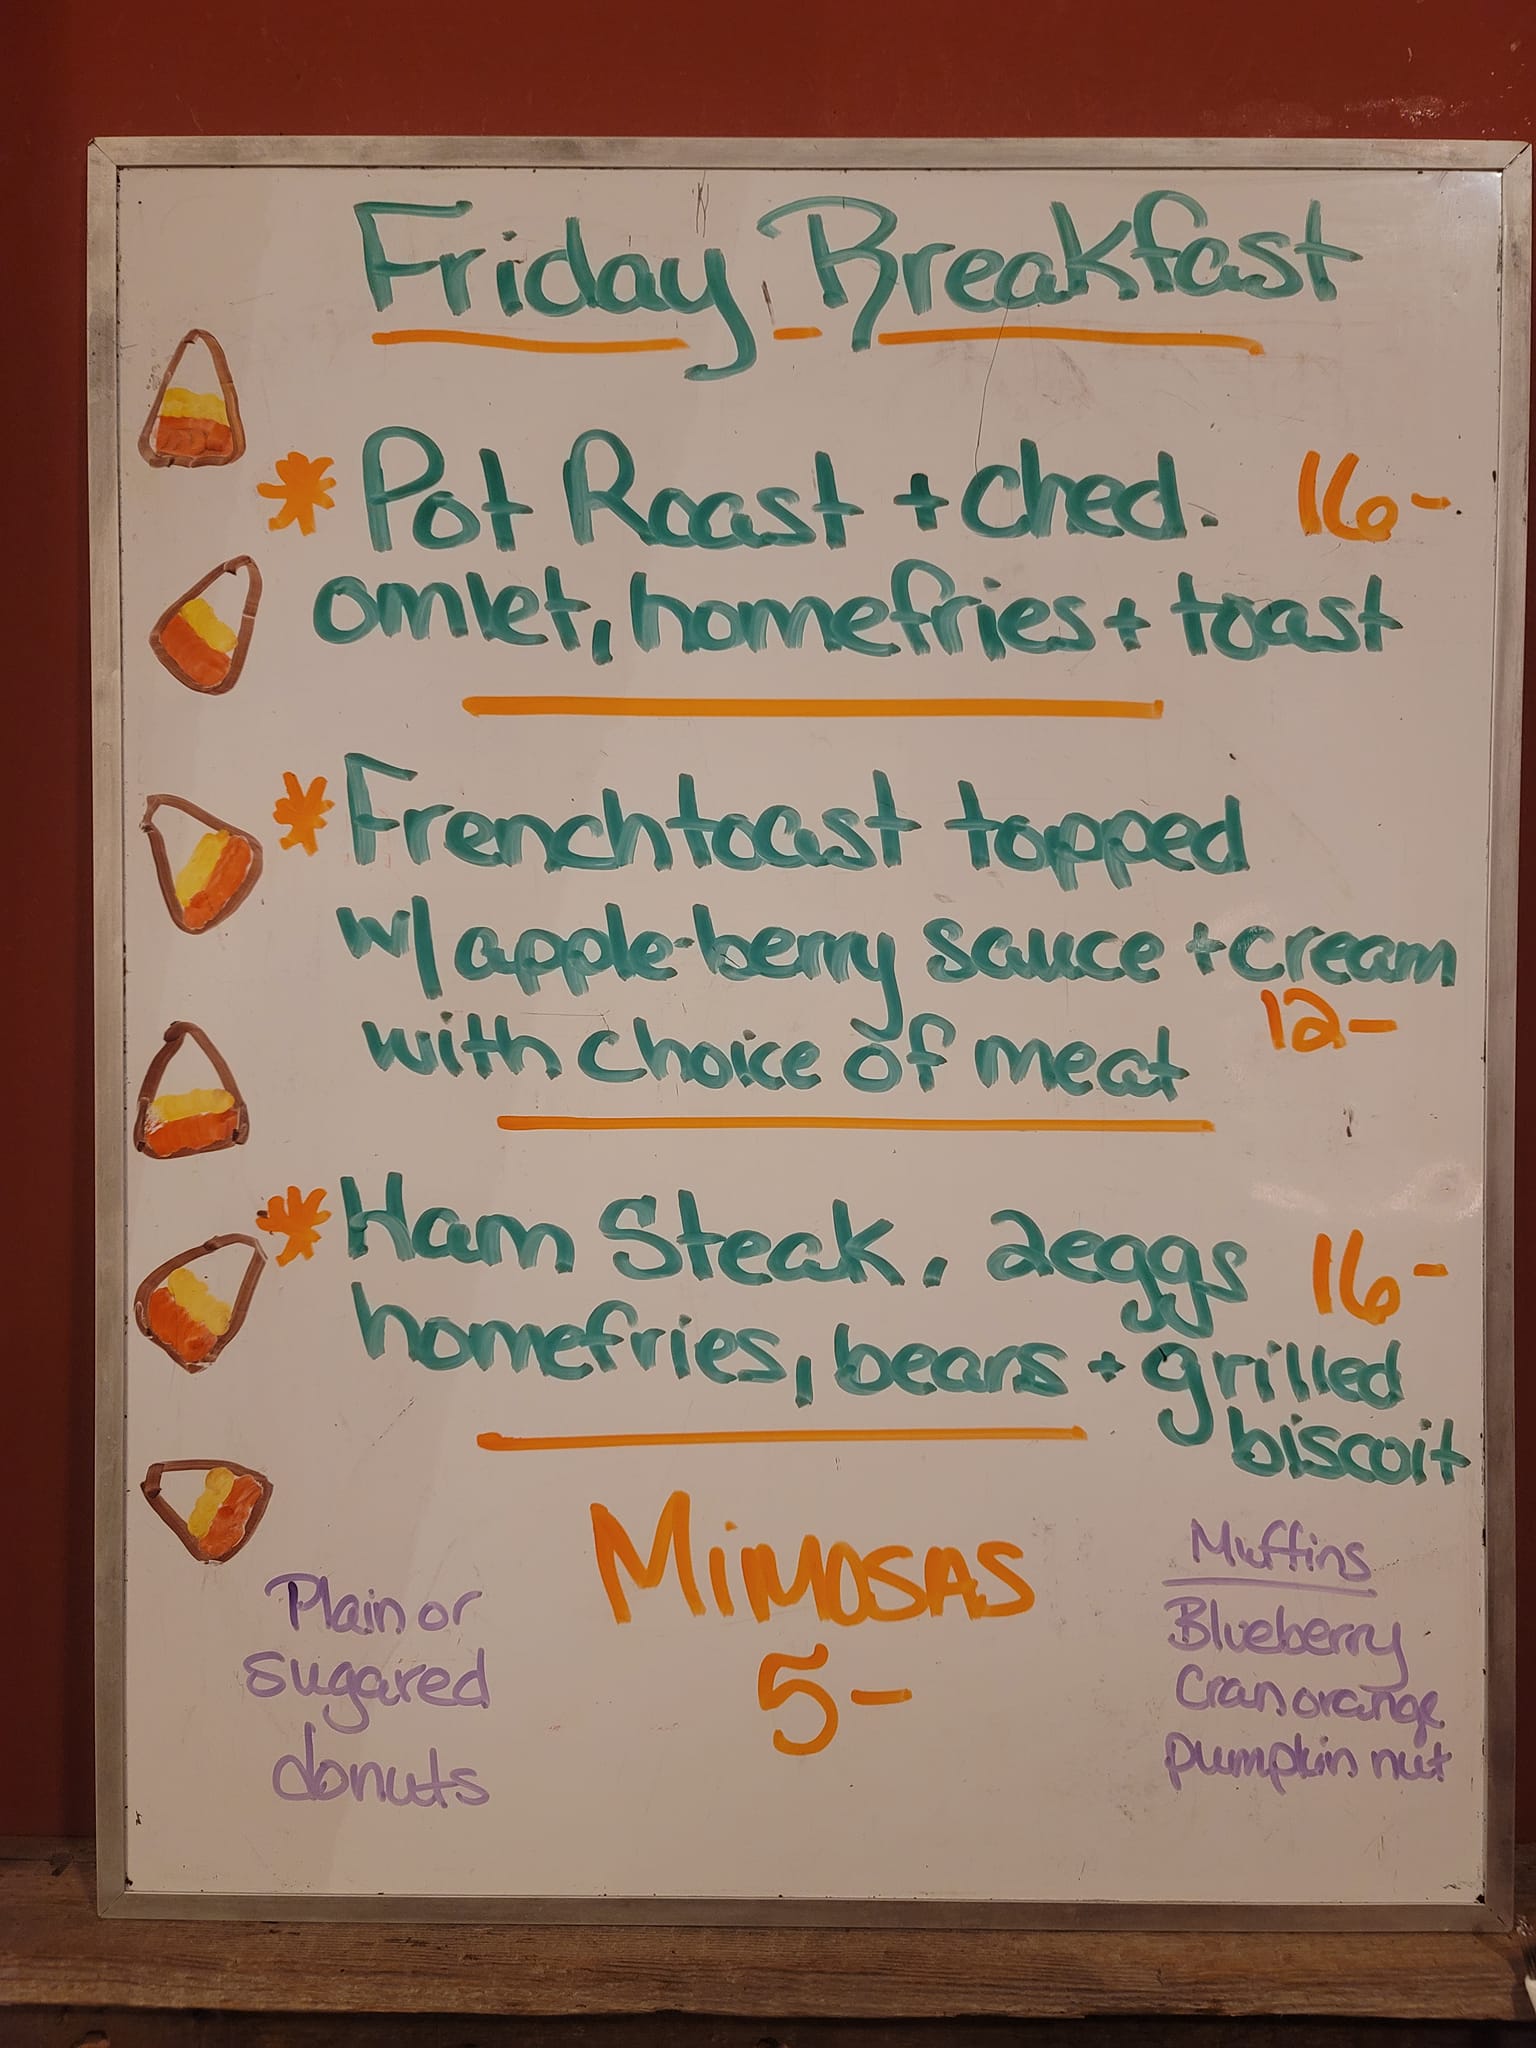 Friday Breakfast
* Pot Roast + Ched. 16-
omlet, homefries + toast
* Frenchtoast topped
w/ apple-berry sauce + cream
with choice of meat 12-
* Ham Steak, 2eggs 16-
homefries, bears + grilled
biscoit
Mimosas
5-
Plain or
sugared
donuts
Muffins
Blueberry
Cranorange
pumpkin nut